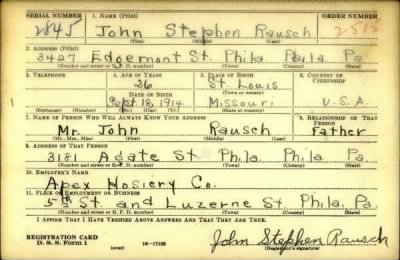 SERIAL NUMBER 1. NAME (Print) ORDER NUMBER
2845 John Stephen Rausch
(First) (Middle) (Last)
2. ADDRESS (Print)
3427 Edgemont St. Phila Phila. Pa.
(Number and street or R. F. D. number) (Town) (County) (State)
3. TELEPHONE 4. AGE IN YEARS 5. PLACE OF BIRTH 6. COUNTRY OF CITIZENSHIP
26 St. Louis
DATE OF BIRTH (Town or county)
Sept. 18, 1914 Missouri U.S.A.
(Exchange) (Number) (Mo.) (Day) (Yr.) (State or country)
7. NAME OF PERSON WHO WILL ALWAYS KNOW YOUR ADDRESS 8. RELATIONSHIP OF THAT PERSON
Mr. John Rausch Father
(Mr., Mrs., Miss) (First) (Middle) (Last)
9. ADDRESS OF THAT PERSON
3181 Agate St. Phila. Phila. Pa.
(Number and street or R. F. D. number) (Town) (County) (State)
10. EMPLOYER'S NAME
Apex Hosiery Co.
11. PLACE OF EMPLOYMENT OR BUSINESS
5th St. and Luzerne St. Phila. Pa.
(Number and street or R. F. D. number) (Town) (County) (State)
I AFFIRM THAT I HAVE VERIFIED ABOVE ANSWERS AND THAT THEY ARE TRUE.
REGISTRATION CARD
D. S. S. Form 1 (over) 16—17105 John Stephen Rausch
(Registrant's signature)